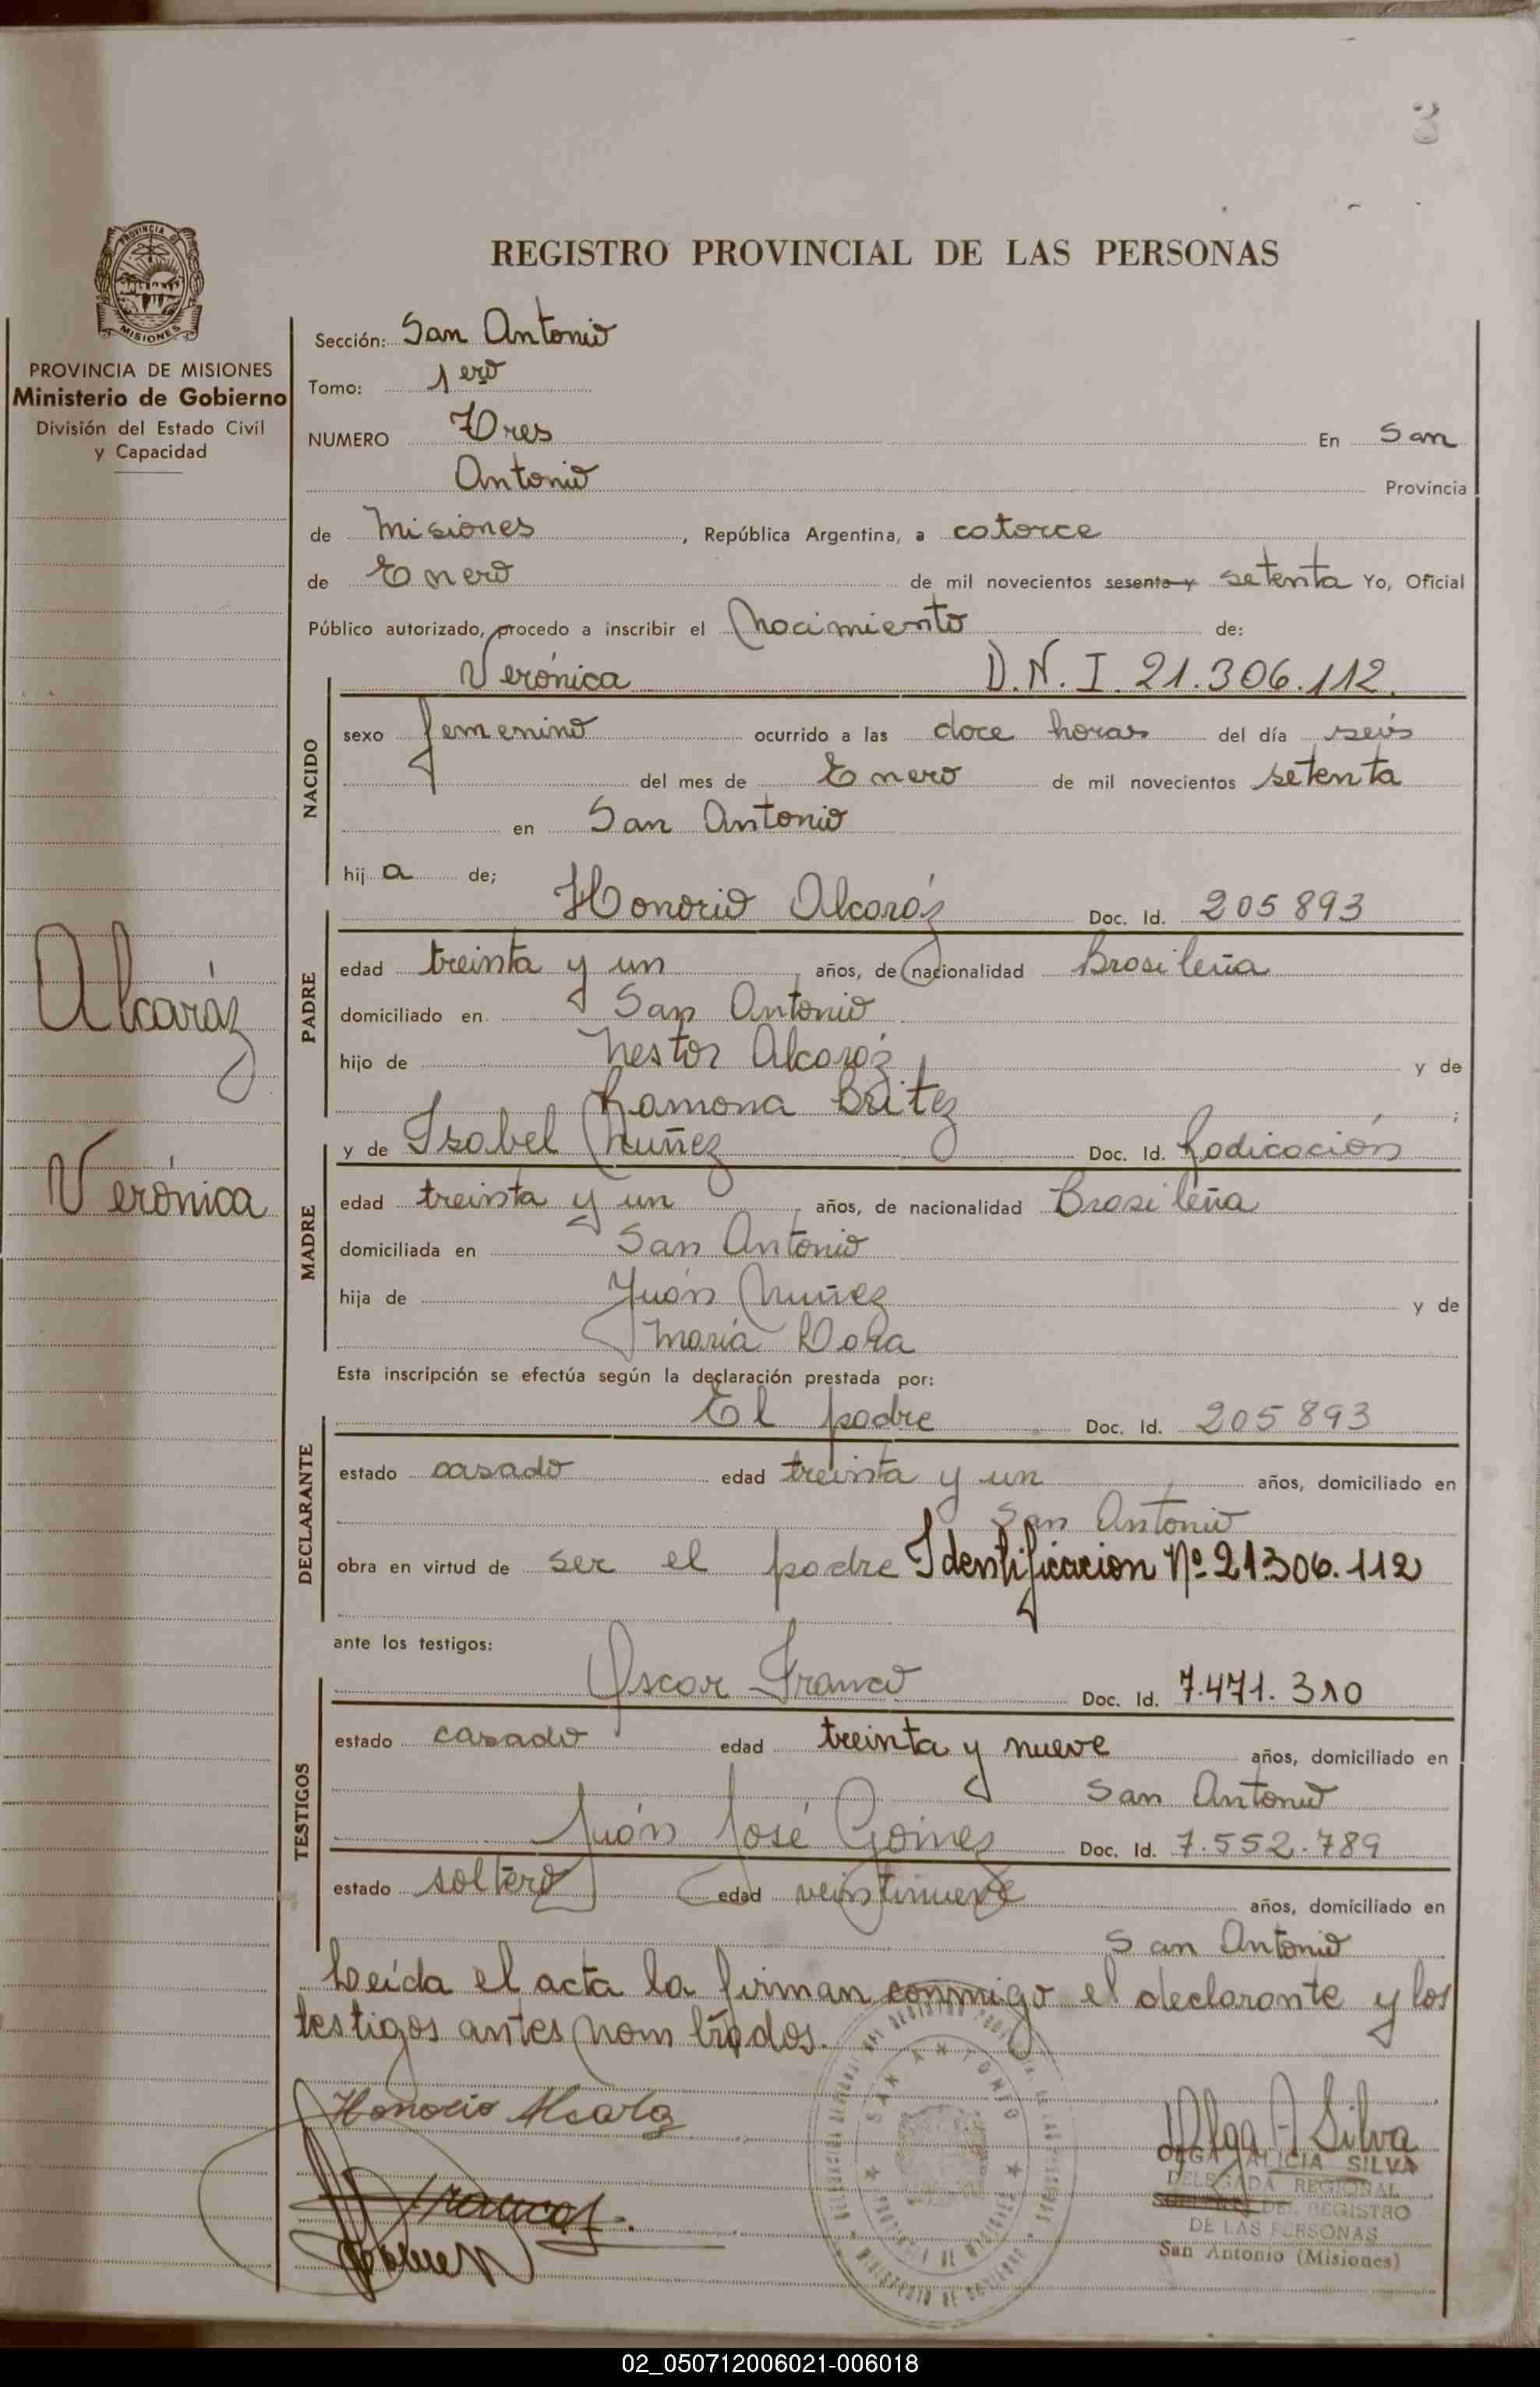 3
REGISTRO PROVINCIAL DE LAS PERSONAS
PROVINCIA DE MISIONES
Ministerio de Gobierno
División del Estado Civil
y Capacidad
Alcaráz
Verónica
Sección: San Antonio
Tomo: 1ero
NUMERO Tres En San
Antonio Provincia
de Misiones, República Argentina, a catorce
de Enero de mil novecientos sesenta y setenta Yo, Oficial
Público autorizado, procedo a inscribir el Nacimiento de:
Verónica D.N.I. 21.306.112.
NACIDO
sexo femenino ocurrido a las doce horas del día seis
del mes de Enero de mil novecientos setenta
en San Antonio
hija de;
Honorio Alcaráz Doc. Id. 205893
PADRE
edad treinta y un años, de nacionalidad Brasileña
domiciliado en San Antonio
hijo de Nestor Alcaráz y de
Ramona Britez ;
y de Isabel Nuñez Doc. Id. Radicación
MADRE
edad treinta y un años, de nacionalidad Brasileña
domiciliada en San Antonio
hija de Juán Nuñez y de
María Dora
Esta inscripción se efectúa según la declaración prestada por:
El padre Doc. Id. 205893
DECLARANTE
estado casado edad treinta y un años, domiciliado en
San Antonio
obra en virtud de ser el padre Identificacion Nº 21.306.112
ante los testigos:
Oscar Franco Doc. Id. 7.471.310
TESTIGOS
estado casado edad treinta y nueve años, domiciliado en
San Antonio
Juán José Goines Doc. Id. 7.552.789
estado soltero edad veintinueve años, domiciliado en
San Antonio
Leída el acta la firman conmigo el declarante y los
testigos antes nombrados.
Honorio Alcaraz
Olga A Silva
OLGA ALICIA SILVA
DELEGADA REGIONAL
DEL REGISTRO
DE LAS PERSONAS
San Antonio (Misiones)
SAN ANTONIO
02_050712006021-006018